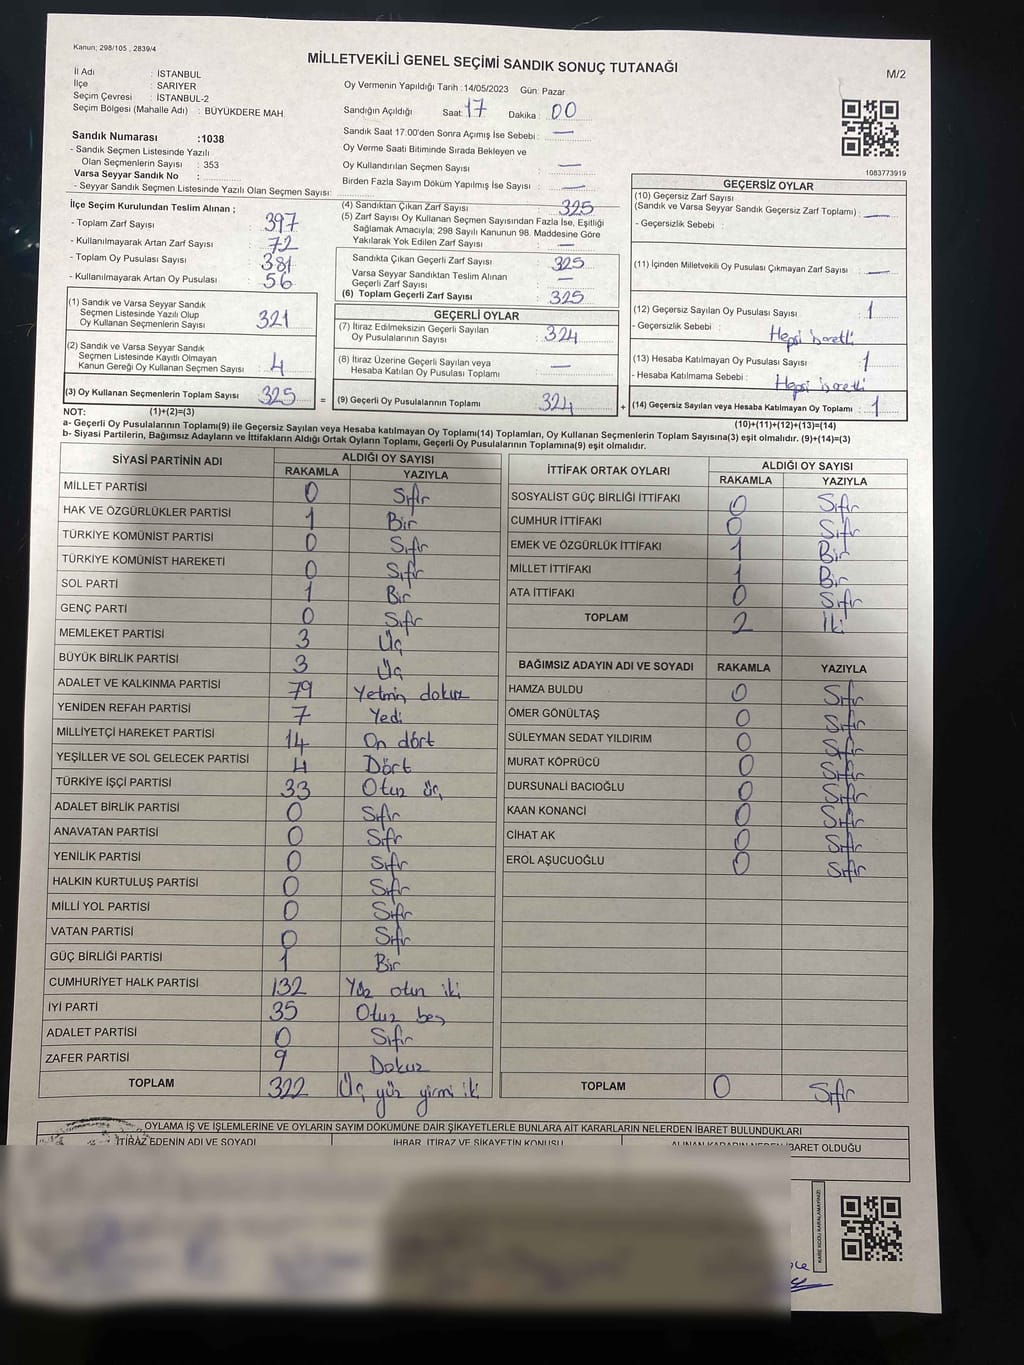 Kanun; 298/105 , 2839/4
MİLLETVEKİLİ GENEL SEÇİMİ SANDIK SONUÇ TUTANAĞI
M/2
İl Adı : İSTANBUL
İlçe : SARIYER
Seçim Çevresi : İSTANBUL-2
Seçim Bölgesi (Mahalle Adı) : BÜYÜKDERE MAH.
Sandık Numarası :1038
- Sandık Seçmen Listesinde Yazılı
Olan Seçmenlerin Sayısı : 353
Varsa Seyyar Sandık No :
- Seyyar Sandık Seçmen Listesinde Yazılı Olan Seçmen Sayısı:
Oy Vermenin Yapıldığı Tarih :14/05/2023 Gün: Pazar
Sandığın Açıldığı Saat: 17 Dakika : 00
Sandık Saat 17:00'den Sonra Açımış İse Sebebi : —
Oy Verme Saati Bitiminde Sırada Bekleyen ve
Oy Kullandırılan Seçmen Sayısı : —
Birden Fazla Sayım Döküm Yapılmış İse Sayısı : —
1083773919
İlçe Seçim Kurulundan Teslim Alınan ;
- Toplam Zarf Sayısı : 397
- Kullanılmayarak Artan Zarf Sayısı : 72
- Toplam Oy Pusulası Sayısı : 381
- Kullanılmayarak Artan Oy Pusulası : 56
(1) Sandık ve Varsa Seyyar Sandık
Seçmen Listesinde Yazılı Olup
Oy Kullanan Seçmenlerin Sayısı : 321
(2) Sandık ve Varsa Seyyar Sandık
Seçmen Listesinde Kayıtlı Olmayan
Kanun Gereği Oy Kullanan Seçmen Sayısı : 4
(3) Oy Kullanan Seçmenlerin Toplam Sayısı : 325
(1)+(2)=(3)
(4) Sandıktan Çıkan Zarf Sayısı : 325
(5) Zarf Sayısı Oy Kullanan Seçmen Sayısından Fazla İse, Eşitliği
Sağlamak Amacıyla; 298 Sayılı Kanunun 98. Maddesine Göre
Yakılarak Yok Edilen Zarf Sayısı : —
Sandıkta Çıkan Geçerli Zarf Sayısı : 325
Varsa Seyyar Sandıktan Teslim Alınan
Geçerli Zarf Sayısı : —
(6) Toplam Geçerli Zarf Sayısı : 325
GEÇERLİ OYLAR
(7) İtiraz Edilmeksizin Geçerli Sayılan
Oy Pusulalarının Sayısı : 324
(8) İtiraz Üzerine Geçerli Sayılan veya
Hesaba Katılan Oy Pusulası Toplamı : —
= (9) Geçerli Oy Pusulalarının Toplamı : 324 +
GEÇERSİZ OYLAR
(10) Geçersiz Zarf Sayısı
(Sandık ve Varsa Seyyar Sandık Geçersiz Zarf Toplamı) : —
- Geçersizlik Sebebi :
(11) İçinden Milletvekili Oy Pusulası Çıkmayan Zarf Sayısı : —
(12) Geçersiz Sayılan Oy Pusulası Sayısı : 1
- Geçersizlik Sebebi : Hepsi işaretli
(13) Hesaba Katılmayan Oy Pusulası Sayısı : 1
- Hesaba Katılmama Sebebi : Hepsi işaretli
(14) Geçersiz Sayılan veya Hesaba Katılmayan Oy Toplamı : 1
(10)+(11)+(12)+(13)=(14)
NOT:
a- Geçerli Oy Pusulaları Toplamı(9) ile Geçersiz Sayılan veya Hesaba Katılmayan Oy Toplamı(14) Toplamları, Oy Kullanan Seçmenlerin Toplam Sayısına(3) eşit olmalıdır. (9)+(14)=(3)
b- Siyasi Partilerin, Bağımsız Adayların ve İttifakların Aldığı Ortak Oyların Toplamı, Geçerli Oy Pusulalarının Toplamına(9) eşit olmalıdır.
SİYASİ PARTİNİN ADI ALDIĞI OY SAYISI
RAKAMLA YAZIYLA
MİLLET PARTİSİ 0 Sıfır
HAK VE ÖZGÜRLÜKLER PARTİSİ 1 Bir
TÜRKİYE KOMÜNİST PARTİSİ 0 Sıfır
TÜRKİYE KOMÜNİST HAREKETİ 0 Sıfır
SOL PARTİ 1 Bir
GENÇ PARTİ 0 Sıfır
MEMLEKET PARTİSİ 3 Üç
BÜYÜK BİRLİK PARTİSİ 3 Üç
ADALET VE KALKINMA PARTİSİ 79 Yetmiş dokuz
YENİDEN REFAH PARTİSİ 7 Yedi
MİLLİYETÇİ HAREKET PARTİSİ 14 On dört
YEŞİLLER VE SOL GELECEK PARTİSİ 4 Dört
TÜRKİYE İŞÇİ PARTİSİ 33 Otuz üç
ADALET BİRLİK PARTİSİ 0 Sıfır
ANAVATAN PARTİSİ 0 Sıfır
YENİLİK PARTİSİ 0 Sıfır
HALKIN KURTULUŞ PARTİSİ 0 Sıfır
MİLLİ YOL PARTİSİ 0 Sıfır
VATAN PARTİSİ 0 Sıfır
GÜÇ BİRLİĞİ PARTİSİ 1 Bir
CUMHURİYET HALK PARTİSİ 132 Yüz otuz iki
İYİ PARTİ 35 Otuz beş
ADALET PARTİSİ 0 Sıfır
ZAFER PARTİSİ 9 Dokuz
TOPLAM 322 Üç yüz yirmi iki
İTTİFAK ORTAK OYLARI ALDIĞI OY SAYISI
RAKAMLA YAZIYLA
SOSYALİST GÜÇ BİRLİĞİ İTTİFAKI 0 Sıfır
CUMHUR İTTİFAKI 0 Sıfır
EMEK VE ÖZGÜRLÜK İTTİFAKI 1 Bir
MİLLET İTTİFAKI 1 Bir
ATA İTTİFAKI 0 Sıfır
TOPLAM 2 İki
BAĞIMSIZ ADAYIN ADI VE SOYADI RAKAMLA YAZIYLA
HAMZA BULDU 0 Sıfır
ÖMER GÖNÜLTAŞ 0 Sıfır
SÜLEYMAN SEDAT YILDIRIM 0 Sıfır
MURAT KÖPRÜCÜ 0 Sıfır
DURSUNALİ BACIOĞLU 0 Sıfır
KAAN KONANCİ 0 Sıfır
CİHAT AK 0 Sıfır
EROL AŞUCUOĞLU 0 Sıfır
TOPLAM 0 Sıfır
OYLAMA İŞ VE İŞLEMLERİNE VE OYLARIN SAYIM DÖKÜMÜNE DAİR ŞİKAYETLERLE BUNLARA AİT KARARLARIN NELERDEN İBARET BULUNDUKLARI
İTİRAZ EDENİN ADI VE SOYADI İHBAR, İTİRAZ VE ŞİKAYETİN KONUSU ALINAN KARARIN NEDEN İBARET OLDUĞU
KARE KODU KARALAMAYINIZ!